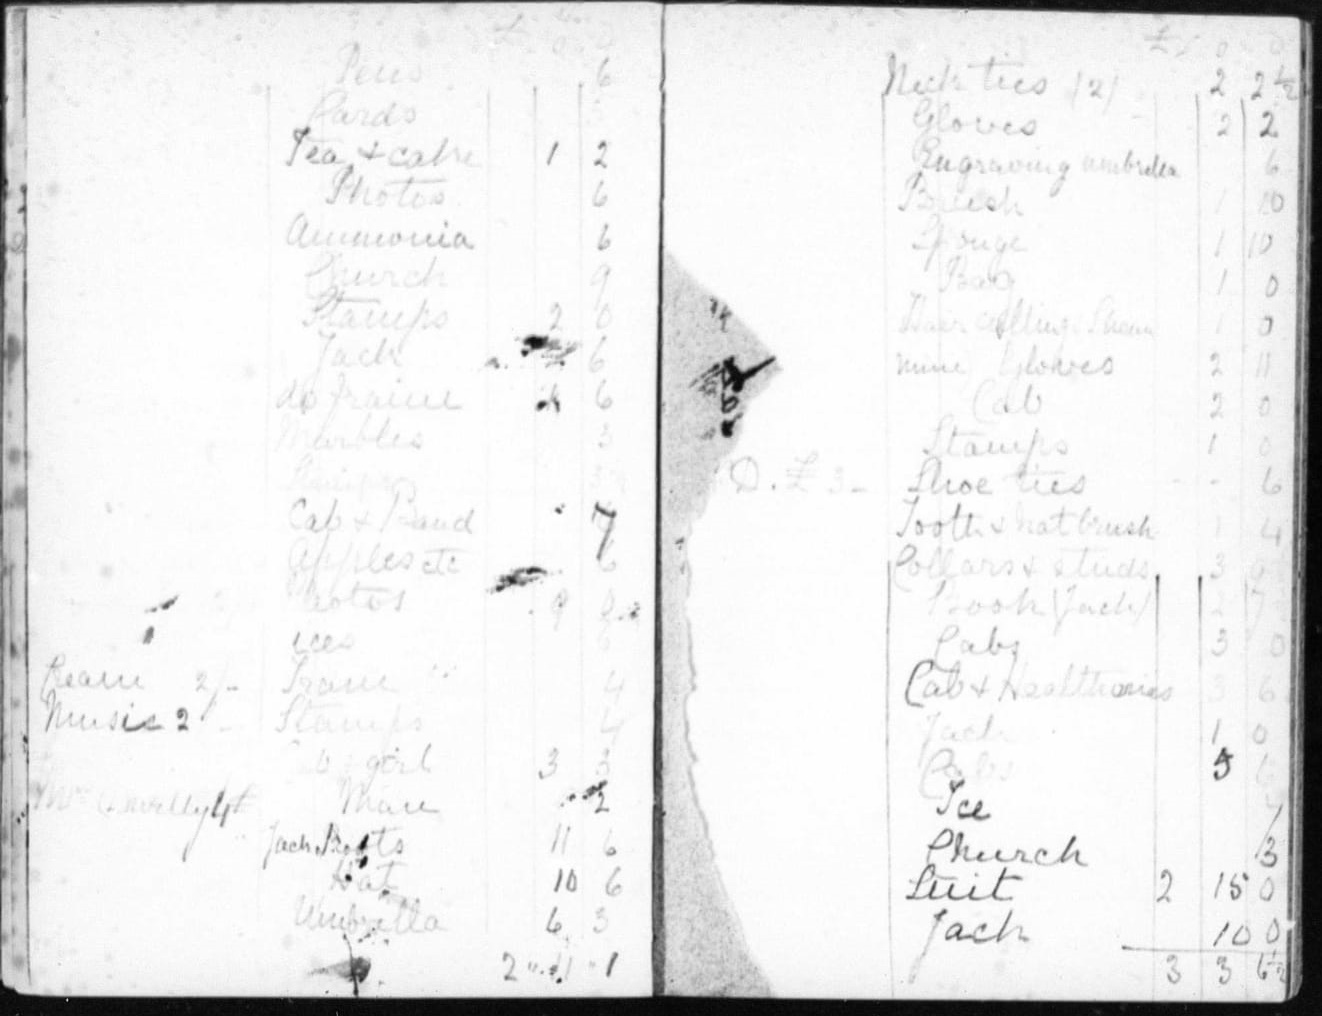 £
Pens 6
Cards 3
Tea & cake 1 2
Photos 6
Ammonia 6
Church 9
Stamps 2 0
Jack 6
do 6
Marbles 3
Stamps 3
Cab & Band 7
Apples etc 6
9
ices 6
Cream 2/- Tram 4
Music 2/- Stamps 4
girl 3 3
Mrs Man 2
Jack Boots 11 6
Hat 10 6
Umbrella 6 3
2 11 1
£
Neck ties (2) 2 2½
Gloves 2 2
Engraving umbrella 6
Brush 1 10
Sponge 1 10
Bag 1 0
1 0
mine Gloves 2 11
Cab 2 0
Stamps 1 0
D. £3- Shoe ties 6
Tooth & hat brush 1 4
Collars & studs 3 9
Book (Jack) 2 7
Cabs 3 0
Cab & 3 6
Jack 1 0
Cabs 5 6
Ice 7
Church 3
Suit 2 15 0
Jack 10 0
3 3 6½